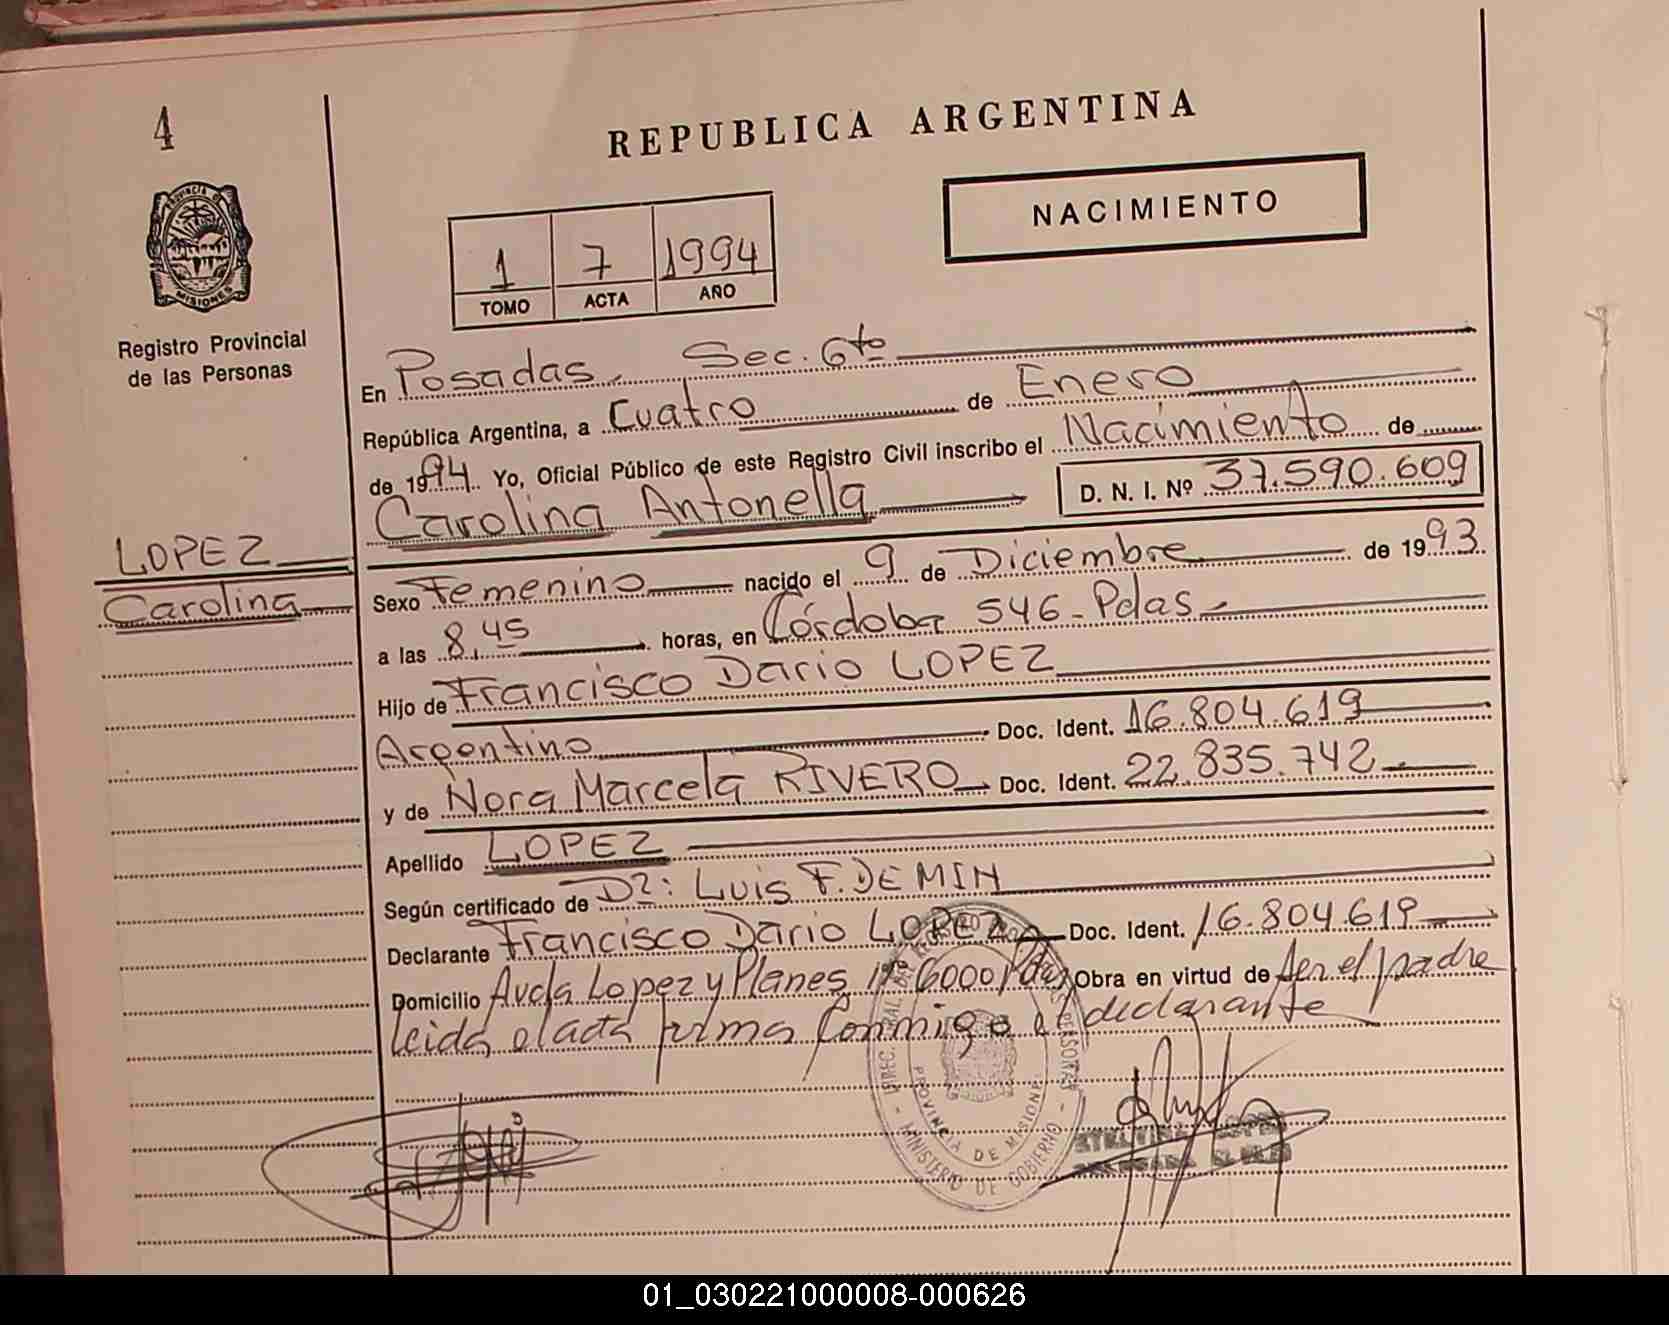 4
REPUBLICA ARGENTINA
NACIMIENTO
1 7 1994
TOMO ACTA AÑO
PROVINCIA D
MISIONES
Registro Provincial
de las Personas
En Posadas, Sec. 6to
República Argentina, a Cuatro de Enero
de 1994. Yo, Oficial Público de este Registro Civil inscribo el Nacimiento de
Carolina Antonella D. N. I. Nº 37.590.609
LOPEZ
Carolina
Sexo Femenino nacido el 9 de Diciembre de 1993
a las 8,45 horas, en Córdoba 546 - Pdas
Hijo de Francisco Dario LOPEZ
Argentino Doc. Ident. 16.804.619
y de Nora Marcela RIVERO Doc. Ident. 22.835.742
Apellido LOPEZ
Según certificado de Dr: Luis F. DEMIN
Declarante Francisco Dario LOPEZ Doc. Ident. 16.804.619
Domicilio Avda Lopez y Planes Nº 6000 Pdas Obra en virtud de ser el padre
leida el acta firma conmigo el declarante
PROVINCIA DE MISIONES
MINISTERIO DE GOBIERNO
01_030221000008-000626